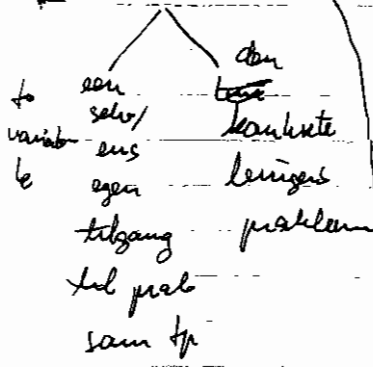 to
variab
le
een
selv/
ens
egen
tilgang
til prob
som tp
den
konkrete
brugers
problem